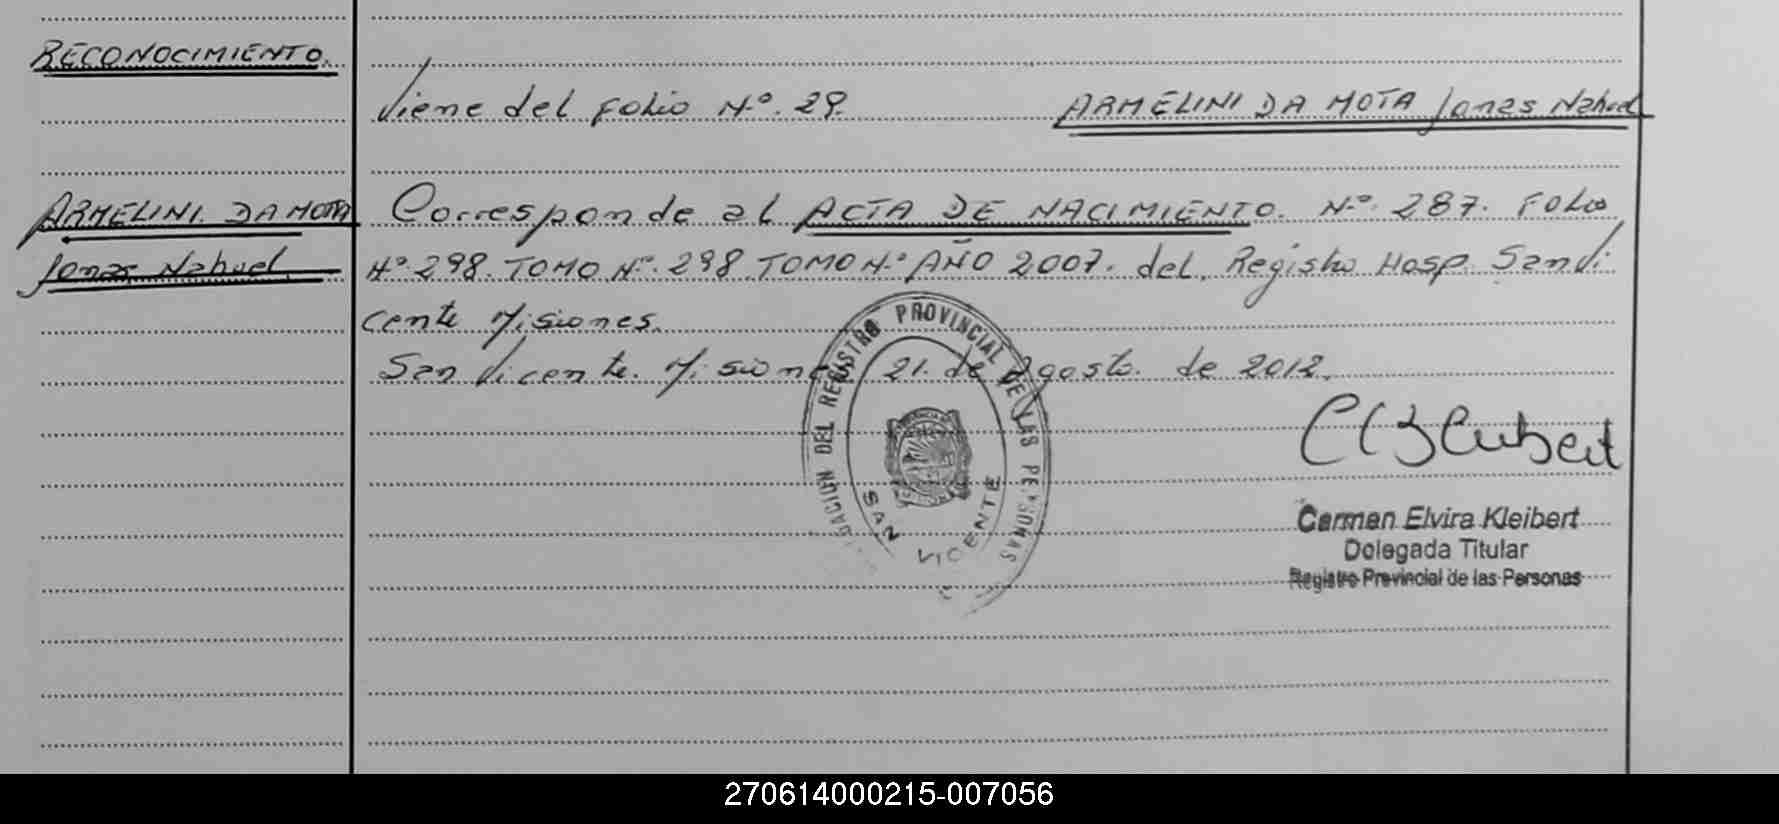 RECONOCIMIENTO.
Viene del Folio Nº. 29. ARMELINI DA MOTA Jonas Nahuel
ARMELINI. DA MOTA
Jonas Nahuel.
Corresponde al ACTA DE NACIMIENTO. Nº. 287. Folio
Nº. 298. TOMO Nº. 298 TOMO Nº. AÑO 2007. del. Registro Hosp. San Vi
cente Misiones.
San Vicente. Misiones 21. de Agosto. de 2012.
DEL REGISTRO PROVINCIAL DE LAS PERSONAS
SAN VICENTE
Carmen Elvira Kleibert
Delegada Titular
Registro Provincial de las Personas
270614000215-007056